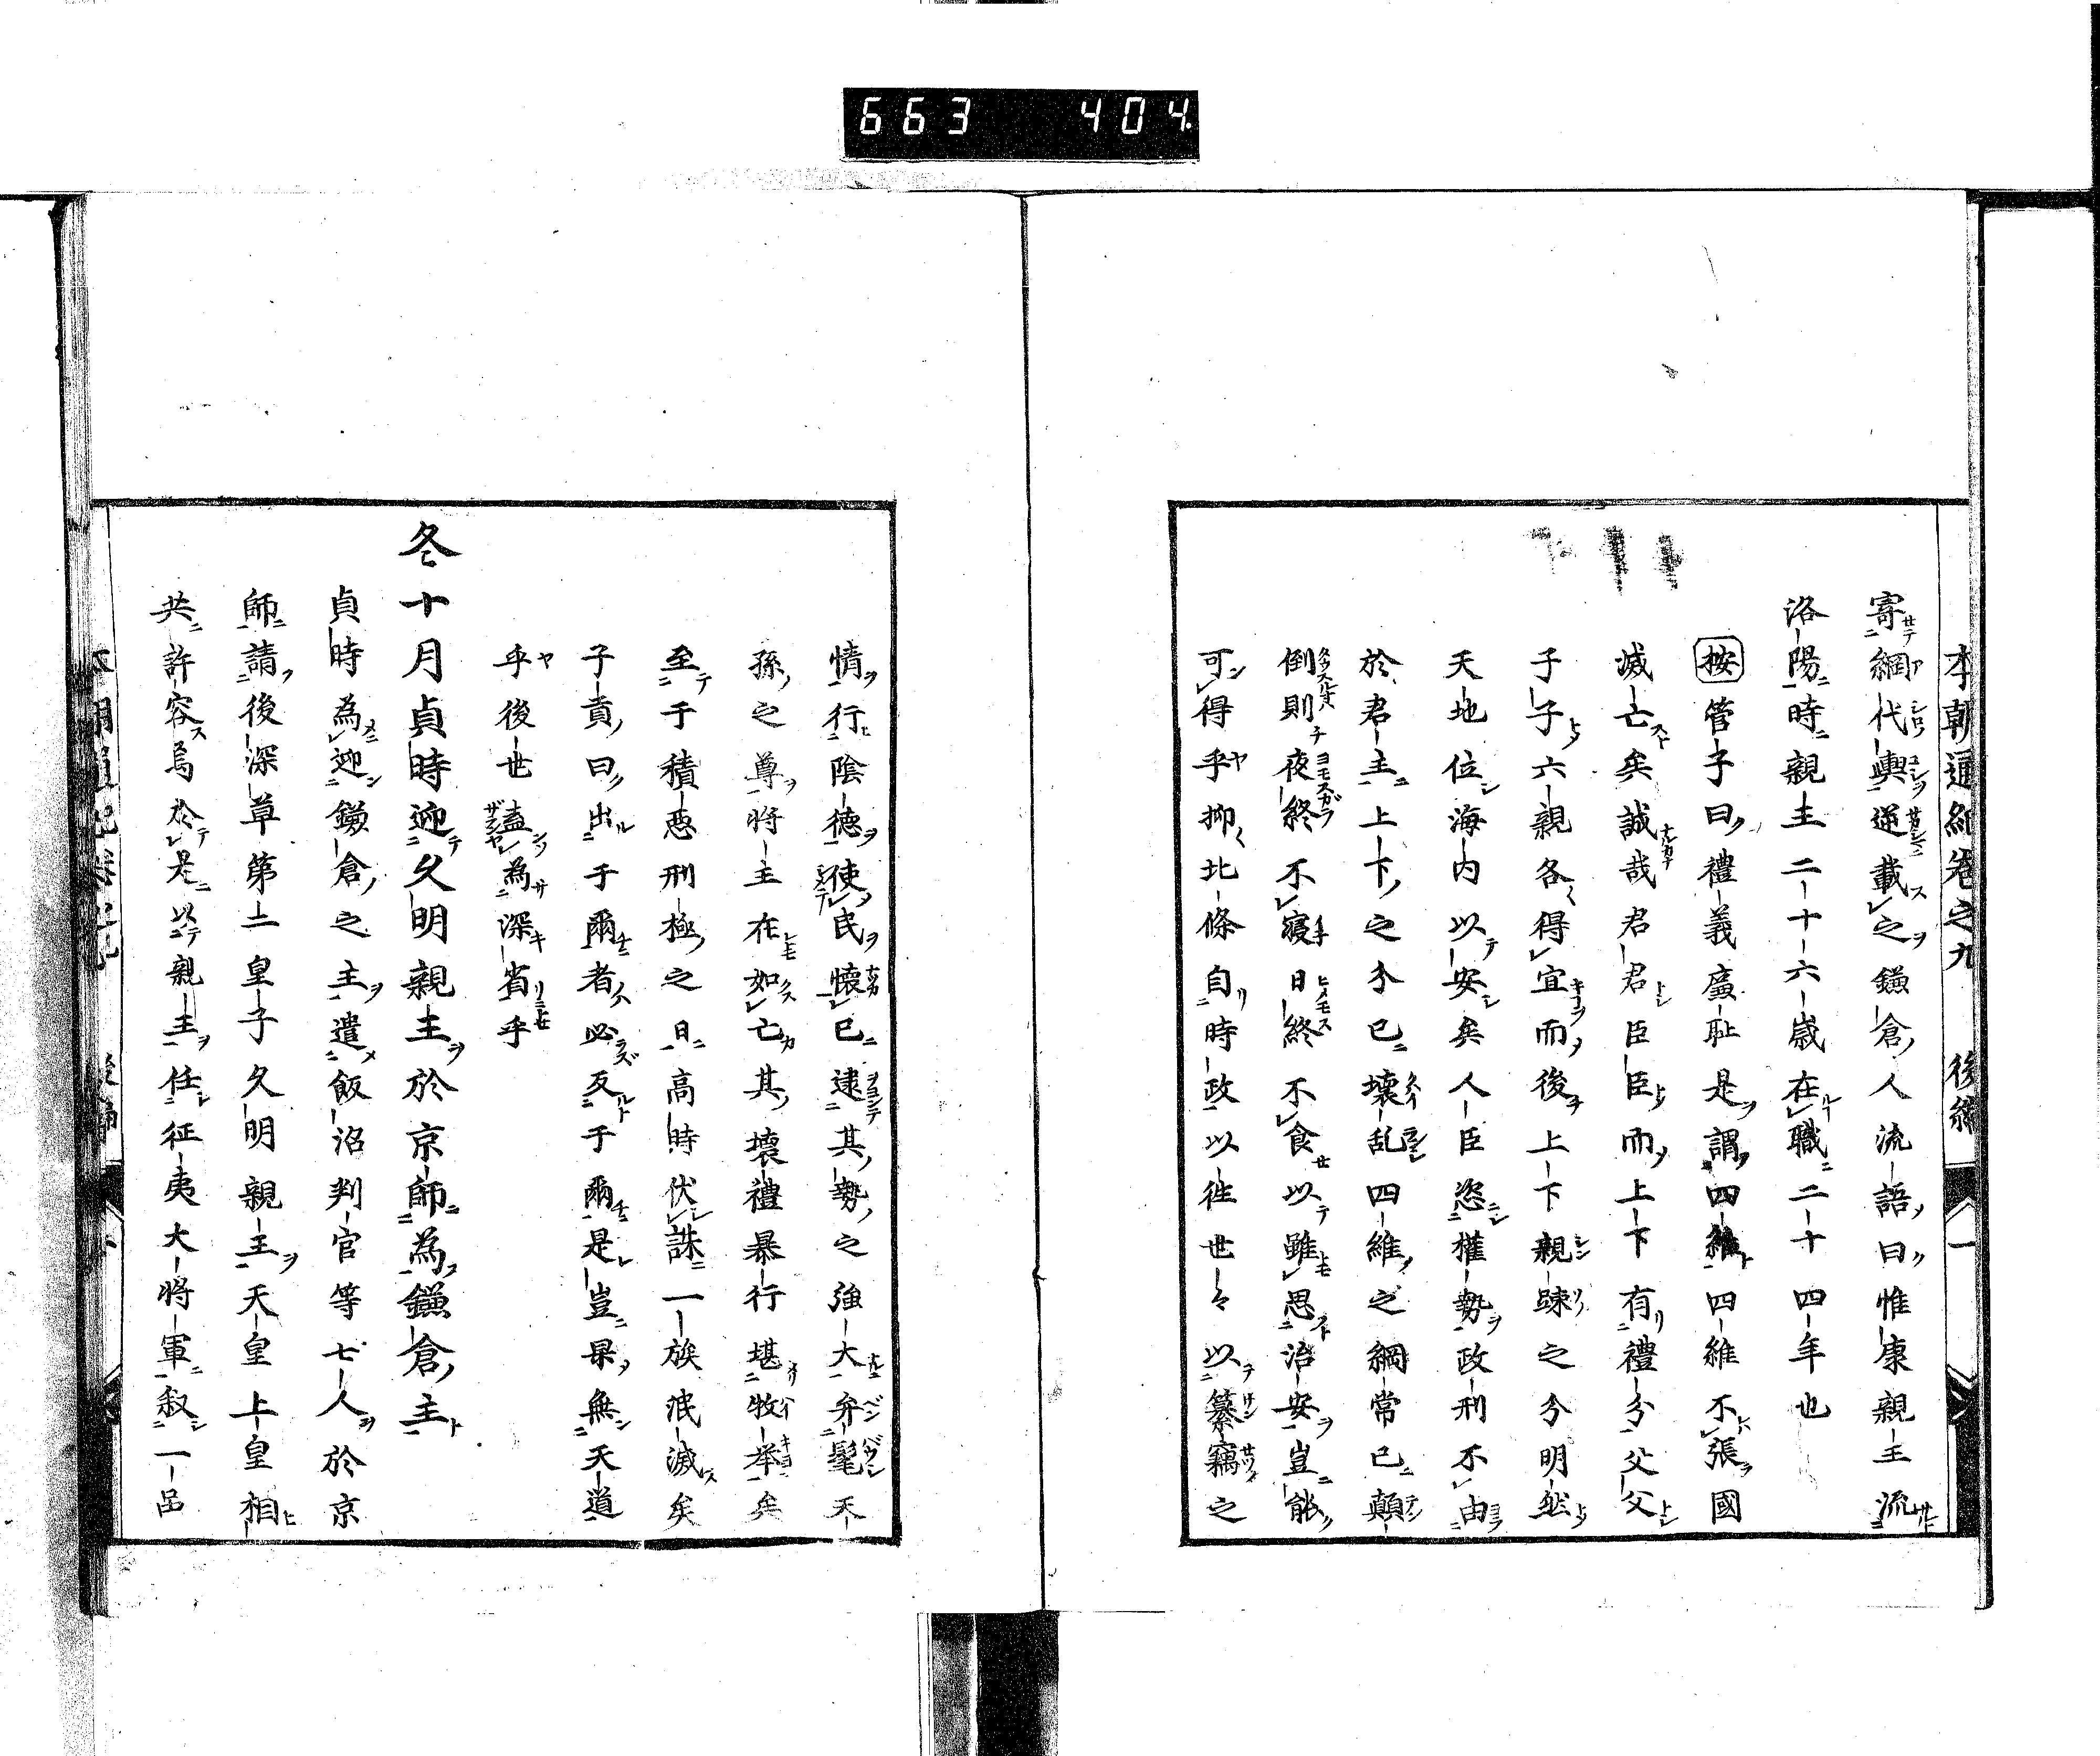 663 404.
本朝通紀卷之九 後編
寄綱代輿逆載之鎌倉人流語曰惟康親王流
洛陽時親王二十六歲在職二十四年也
按管子曰禮義廉耻是謂四維四維不張國
滅亡矣誠哉君君臣臣而上下有禮分父父
子子六親各得宜而後上下親疎之分明然
天地位海内以安矣人臣恣權勢政刑不由
於君主上下之分已壞乱四維之綱常已顛
倒則夜終不寢日終不食以雖思治安豈能
可得乎抑北條自時政以徃世々以纂竊之
情行陰德使民懷已逮其勢之強大弁髦天
孫之尊將主在如亡其壞禮暴行堪牧举矣
至于積惡刑極之日高時伏誅一族泯滅矣
子貢曰出于爾者必反于爾是豈果無天道
乎後世盍為深省乎
冬十月貞時迎久明親王於京師為鎌倉主
貞時為迎鎌倉之主遣飯沼判官等七人於京
師請後深草第二皇子久明親王天皇上皇相
共許容焉於是以親王任征夷大將軍叙一品